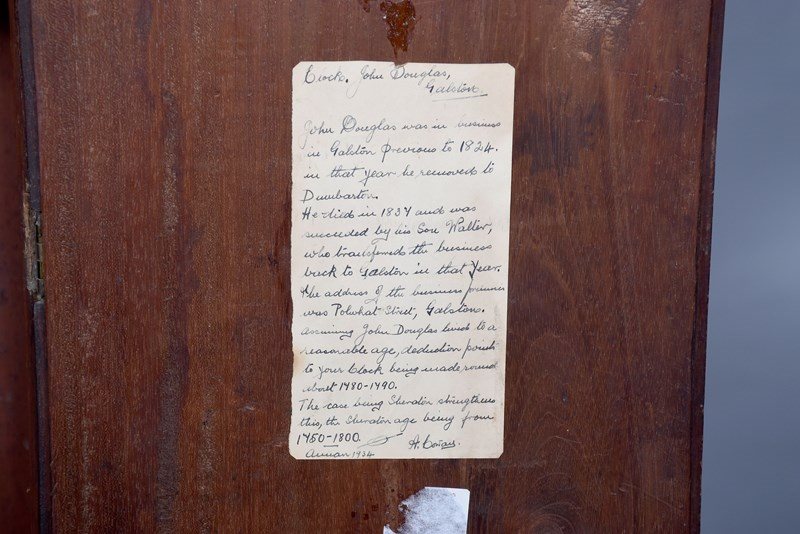 Clock. John Douglas,
Galston.
John Douglas was in business
in Galston previous to 1824.
in that year he removed to
Dumbarton.
He died in 1837 and was
succeeded by his Son Walter,
who transferred the business
back to Galston in that year.
The address of the business premises
was Polwhat Street, Galston.
assuming John Douglas lived to a
reasonable age, deduction points
to your Clock being made round
about 1780-1790.
The case being Sheraton strengthens
this, the Sheraton age being from
1750-1800.
Annan 1934